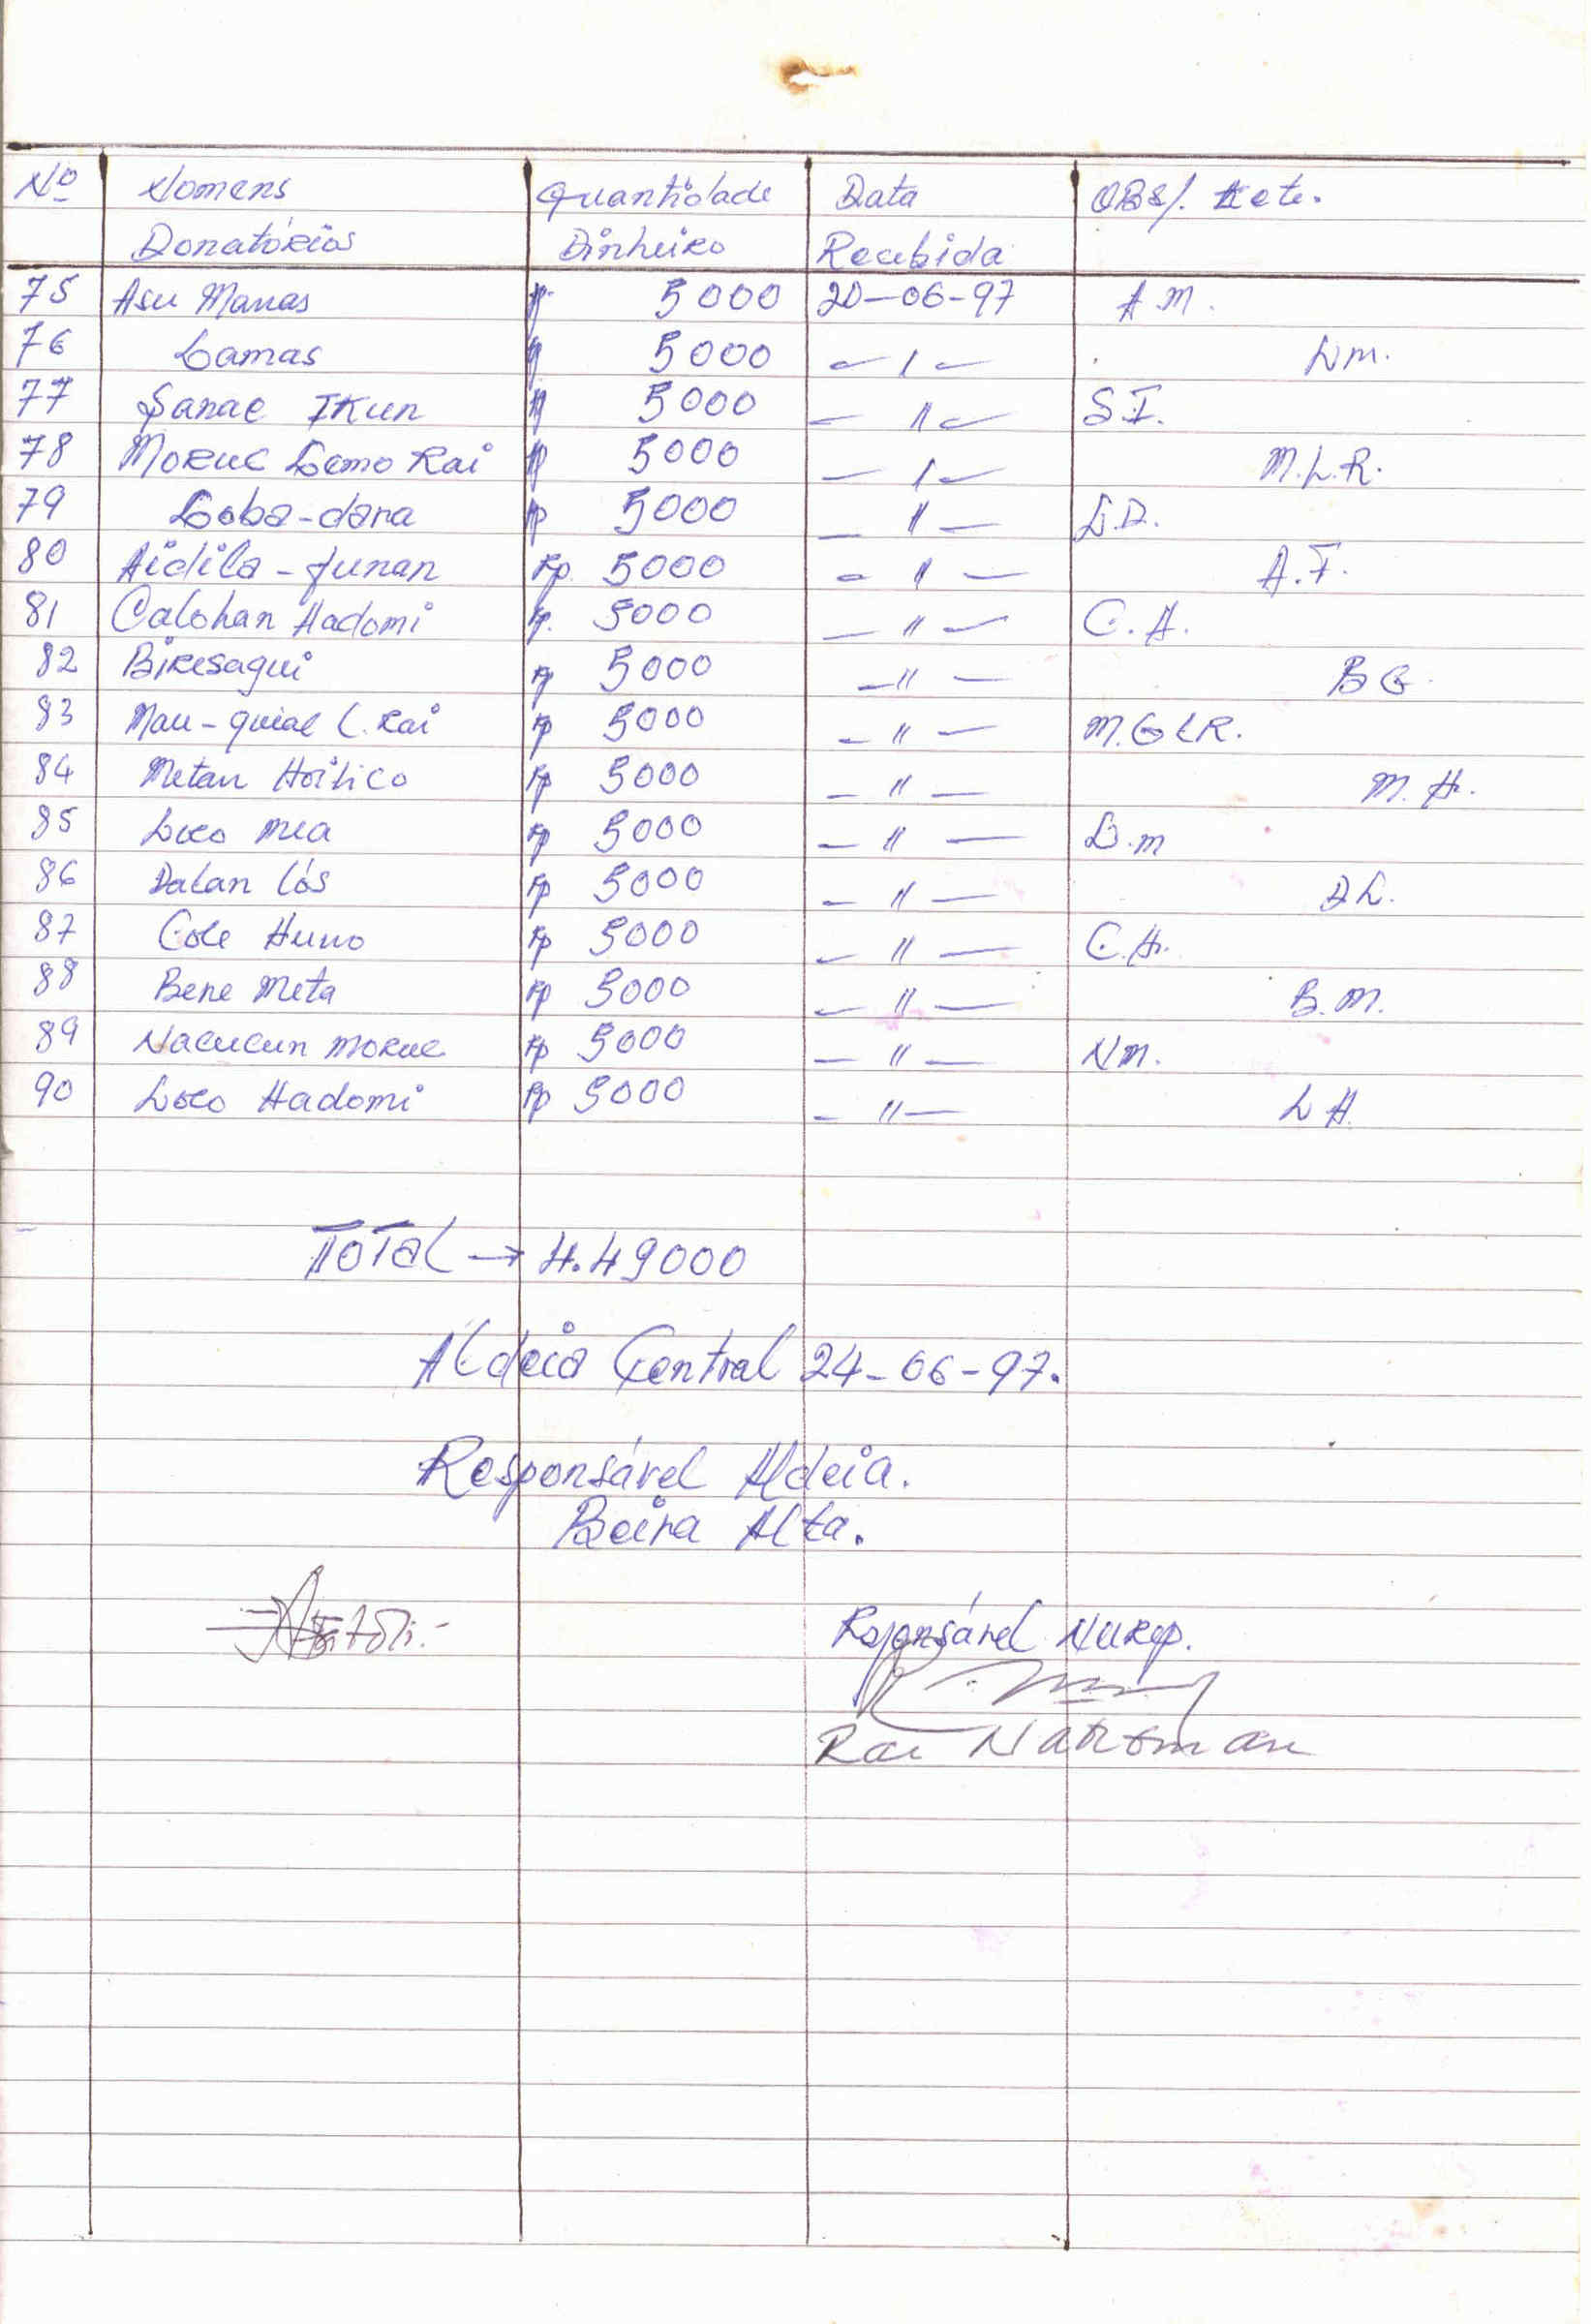 Nº Nomens Quantidade Data OBS/.
Donatórios Dinheiro Recebida
75 Asu Manas Rp 5000 20-06-97 A M.
76 Lamas Rp 5000 — " — L M.
77 Sanac Ikun Rp 5000 — " — S I.
78 Moruc Lemo Rai Rp 5000 — " — M.L.R.
79 Loba-dara Rp 5000 — " — L.D.
80 Aidila-funan Rp. 5000 — " — A.F.
81 Calohan Hadomi Rp. 5000 — " — C.A.
82 Biresagui Rp 5000 — " — B G.
83 Mau-guial L. Rai Rp 5000 — " — M.G L R.
84 Metan Hoitico Rp 5000 — " — M. H.
85 Loco Mea Rp 5000 — " — L.m
86 Dalan Lós Rp 5000 — " — D L.
87 Cole Huno Rp 5000 — " — C.H.
88 Bene Meta Rp 5000 — " — B.M.
89 Nacucun Moruc Rp 5000 — " — N M.
90 Loco Hadomi Rp 5000 — " — L H.
Total → 4.49000
Aldeia Central 24-06-97.
Responsável Aldeia.
Beira Alta.
Responsável Nurep.